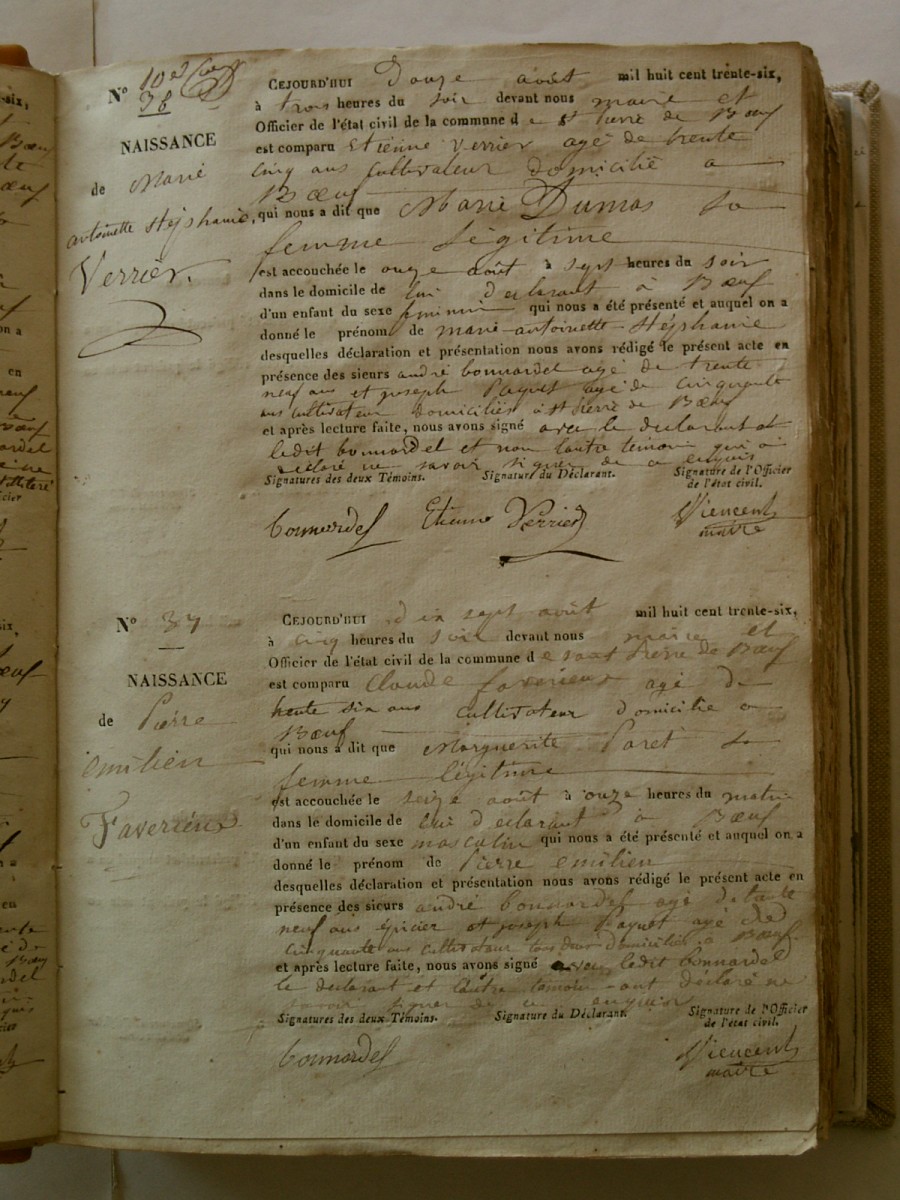 Nº 36
NAISSANCE
de Marie
antoinette Stéphanie,
Verrier.
CEJOURD'HUI Douze août mil huit cent trente-six,
à trois heures du soir devant nous maire et
Officier de l'état civil de la commune de St pierre de Bœuf
est comparu Etienne Verrier agé de trente
cinq ans cultivateur domicilié a
Bœuf
qui nous a dit que Marie Dumas sa
femme légitime
est accouchée le onze août à sept heures du soir
dans le domicile de lui déclarant à Bœuf
d'un enfant du sexe feminin qui nous a été présenté et auquel on a
donné le prénom de marie-antoinette-Stéphanie
desquelles déclaration et présentation nous avons rédigé le présent acte en
présence des sieurs andré bonnardel agé de trente
neuf ans et joseph Paquet agé de cinquante
ans cultivateur domiciliés à St pierre de Bœuf
et après lecture faite, nous avons signé avec le declarant et
ledit bonnardel et non l'autre temoin qui a
déclaré ne savoir signer de ce enquis
Signatures des deux Témoins. Signature du Déclarant. Signature de l'Officier
de l'état civil.
bonnardel Etienne Verrier Viencent
maire
Nº 37
NAISSANCE
de Pierre
emilien
Faverieux
CEJOURD'HUI dix sept août mil huit cent trente-six,
à cinq heures du soir devant nous maire et
Officier de l'état civil de la commune de saint pierre de Bœuf
est comparu Claude faverieux agé de
trente six ans cultivateur domicilié a
Bœuf
qui nous a dit que Marguerite Paret sa
femme légitime
est accouchée le seize août à onze heures du matin
dans le domicile de lui déclarant à Bœuf
d'un enfant du sexe masculin qui nous a été présenté et auquel on a
donné le prénom de Pierre emilien
desquelles déclaration et présentation nous avons rédigé le présent acte en
présence des sieurs andré bonnardel agé de trente
neuf ans épicier et joseph Paquet agé de
cinquante ans cultivateur tous deux domiciliés à Bœuf
et après lecture faite, nous avons signé avec ledit bonnardel
le declarant et l'autre temoin ont déclaré ne
savoir signer de ce enquis
Signatures des deux Témoins. Signature du Déclarant. Signature de l'Officier
de l'état civil.
bonnardel Viencent
maire